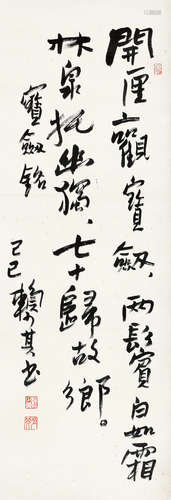 開匣觀寶劍、兩鬢白如霜
林泉托幽獨、七十歸故鄉。
寶劍銘
己巳賴少其書